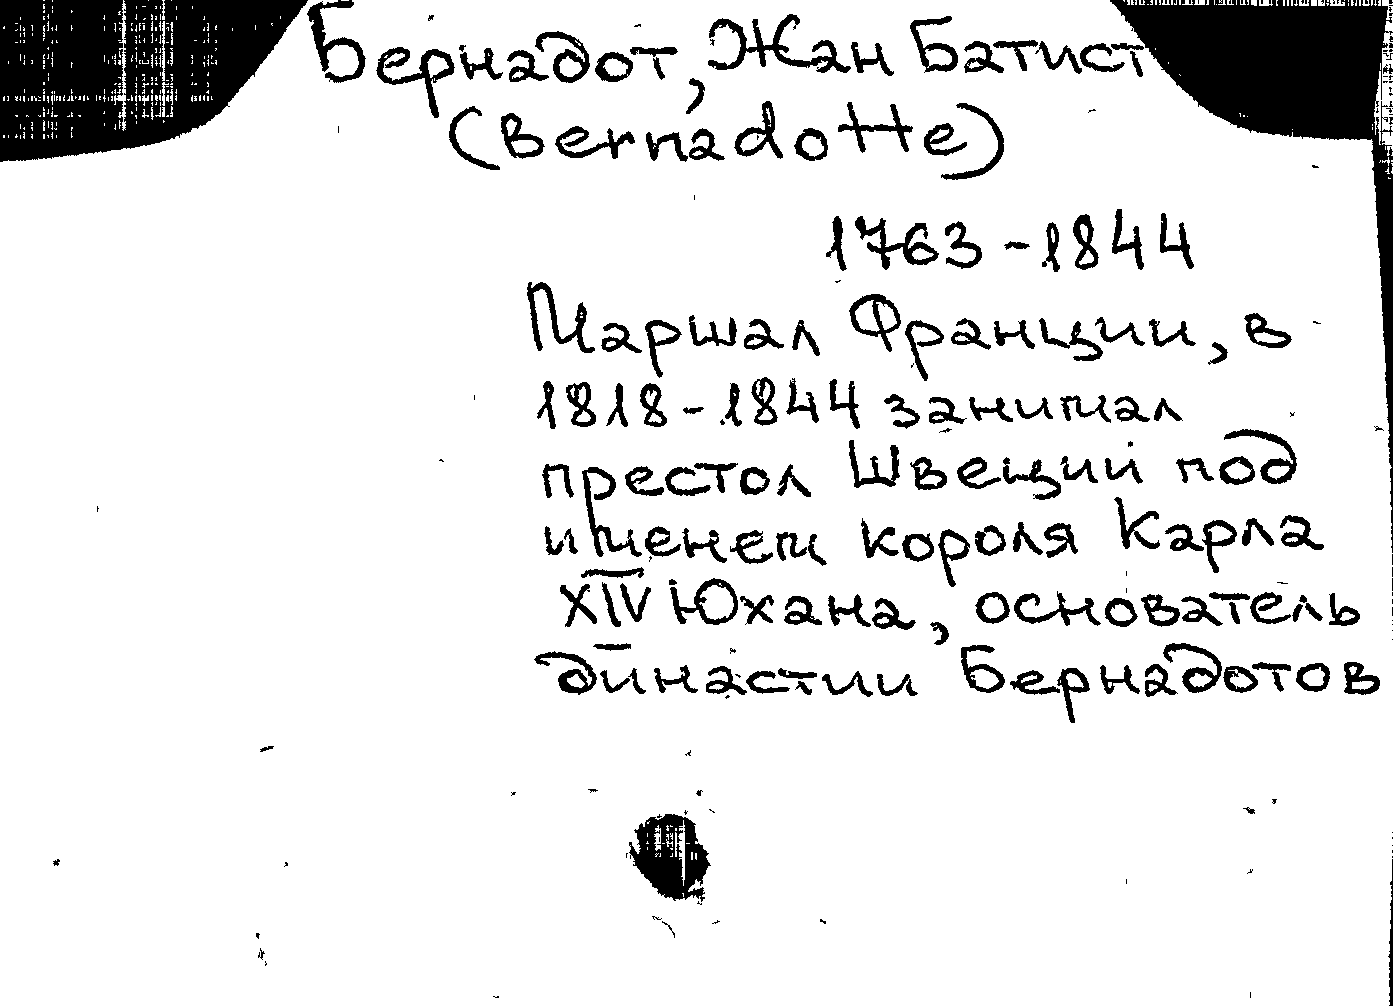 Бернадот, Жан Батист
(Bernadotte)
1763-1844
Маршал Франции, в
1818-1844 занимал
престол Швеции под
именем короля Карла
XIV Юхана, основатель
династии Бернадотов